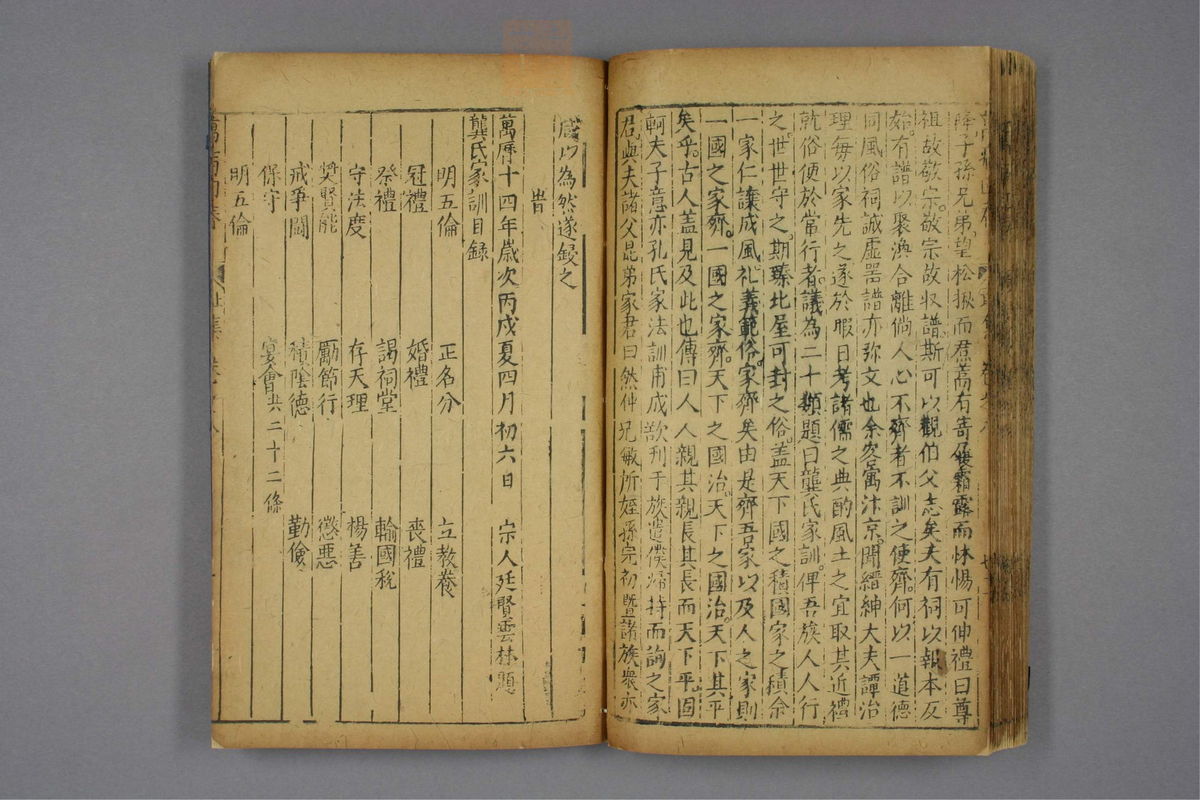 降子孫兄弟望松楸而焄蒿有寄履霜露而怵惕可伸禮曰尊
祖故敬宗敬宗故収譜斯可以觀伯父志矣夫有祠以報本反
始有譜以聚渙合離倘人心不齊者不訓之使齊何以一道德
同風俗祠誠虛器譜亦弥文也余客寓汴京聞縉紳大夫譚治
理每以家先之遂於暇日考諸儒之典酌風土之宜取其近禮
就俗便於當行者議為二十類題曰龔氏家訓俾吾族人人行
之世世守之期臻比屋可封之俗蓋天下國之積國家之積余
一家仁讓成風礼義範俗家齊矣由是齊吾家以及人之家則
一國之家齊一國之家齊天下之國治天下之國治天下其平
矣乎古人蓋見及此也傳曰人人親其親長其長而天下平固
軻夫子意亦孔氏家法訓甫成欲刊于族遣僕歸持而詢之家
君與夫諸父昆弟家君曰然仲兄敏所姪孫完初暨諸族衆亦
咸以為然遂鋟之
旹
萬曆十四年歲次丙戌夏四月初六日 宗人廷賢雲林題
龔氏家訓目録
明五倫 正名分 立教養
冠禮 婚禮 喪禮
祭禮 謁祠堂 輸國稅
守法度 存天理 楊善
奬賢能 勵節行 懲惡
戒爭鬪 積陰德 勤儉
保守 宴會共二十二條
明五倫